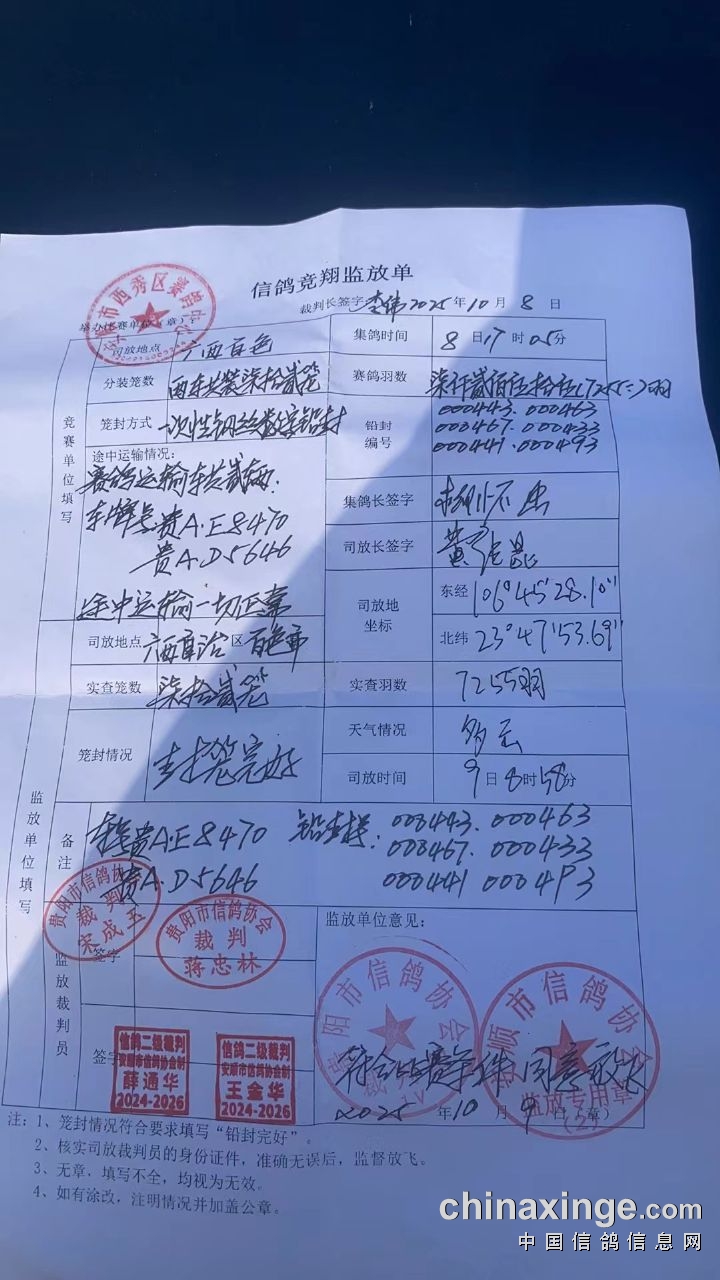 信鸽竞翔监放单
裁判长签字: 李伟 2025年10月8日
安顺市西秀区赛鸽中心
举办比赛单位(章):
竞赛单位填写
司放地点 广西百色
集鸽时间 8日17时05分
分装笼数 两车共装柒拾贰笼
赛鸽羽数 柒仟贰佰伍拾伍(7255)羽
笼封方式 一次性钢丝数字铅封
铅封编号 000443. 000463
000467. 000433
000441. 000493
途中运输情况:
赛鸽运输车共贰辆.
车牌号贵A·E8470
贵A·D5646
途中运输一切正常
集鸽长签字
司放长签字
司放地坐标
东经 106°45'28.10"
北纬 23°47'53.69"
监放单位填写
司放地点 广西自治区百色市
实查笼数 柒拾贰笼
实查羽数 7255羽
笼封情况 封笼完好
天气情况 多云
司放时间 9日8时58分
备注
车号贵A·E8470
贵A·D5646
铅封号: 000443. 000463
000467. 000433
000441 000493
监放裁判员
签字
贵阳市信鸽协会
裁判
宋成玉
贵阳市信鸽协会
裁判
蒋忠林
签字
信鸽二级裁判
安顺市信鸽协会制
薛通华
2024-2026
信鸽二级裁判
安顺市信鸽协会制
王金华
2024-2026
监放单位意见:
贵阳市信鸽协会
安顺市信鸽协会
监放专用章
符合比赛条件 同意放飞
2025年10月9日(章)
注: 1、笼封情况符合要求填写“铅封完好”。
2、核实司放裁判员的身份证件,准确无误后,监督放飞。
3、无章,填写不全,均视为无效。
4、如有涂改,注明情况并加盖公章。
chinaxinge.com
中国信鸽信息网